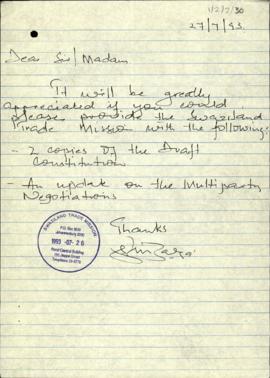 27/7/93.
Dear Sir/Madam
It will be greatly
appreciated if you could
please provide the Swaziland
Trade Mission with the following:
- 2 copies of the Draft
Constitution
- An update on the Multiparty
Negotiations
Thanks
SWAZILAND TRADE MISSION
P.O. Box
Johannesburg
1993 -07- 26